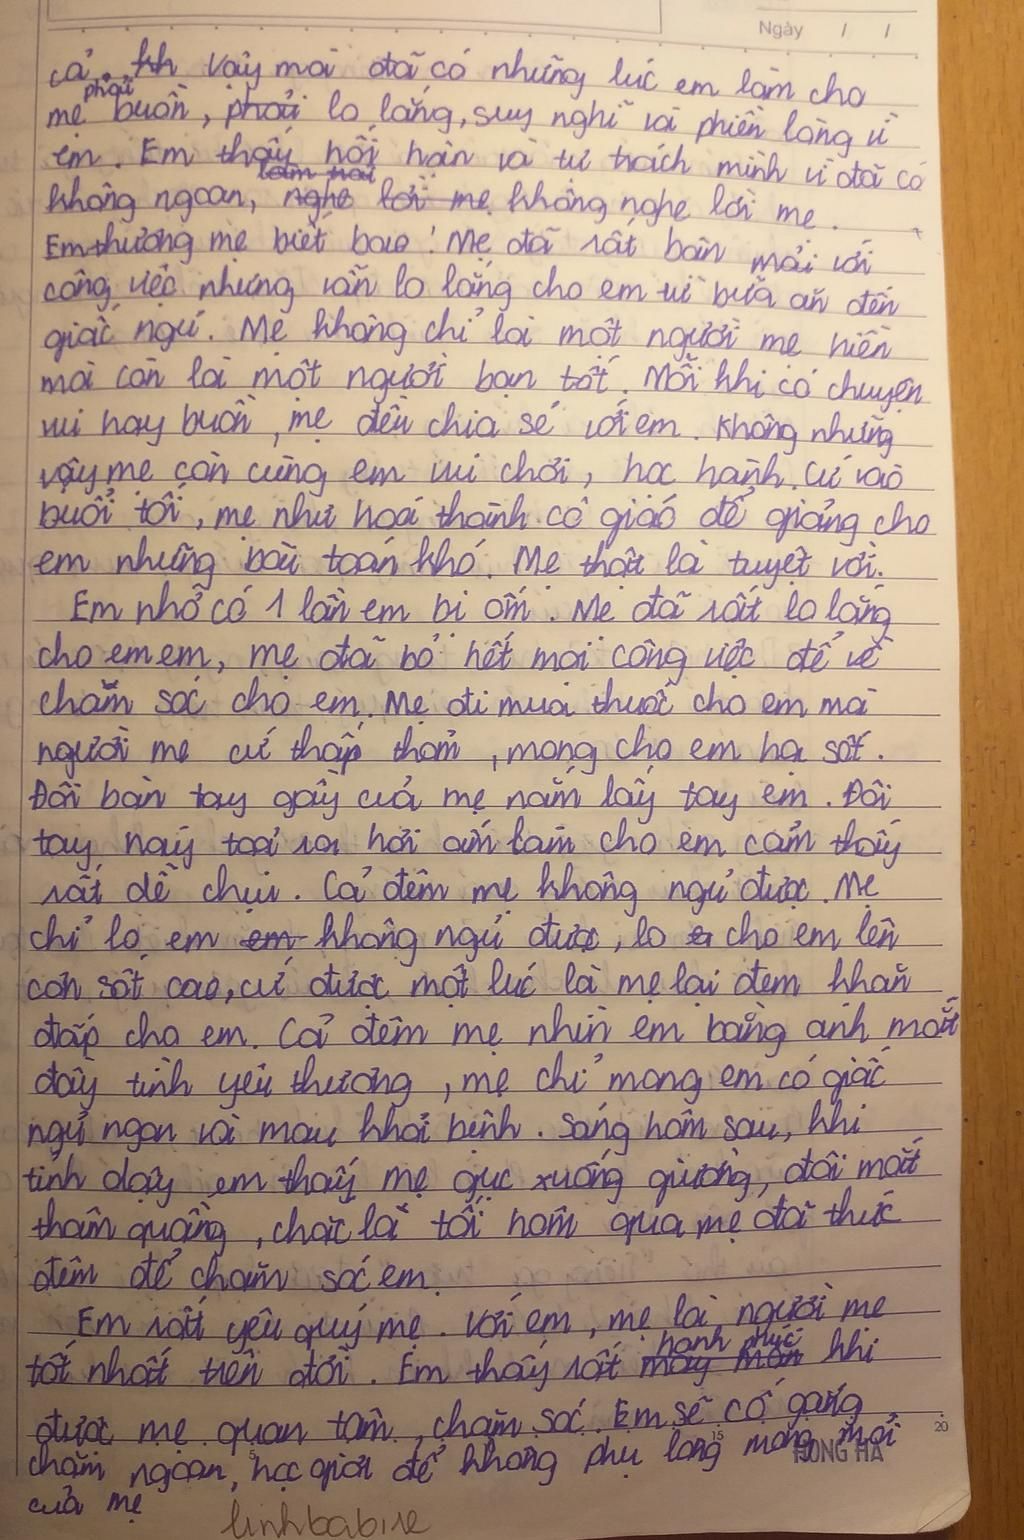 Ngày / /
cả. kh vậy mà đã có những lúc em làm cho
phải
mẹ buồn, phải lo lắng, suy nghĩ và phiền lòng vì
em. Em thấy hối hận và tự trách mình vì đã có
làm trái
không ngoan, nghe lời mẹ không nghe lời mẹ.
Em thương mẹ biết bao! Mẹ đã rất bận mải với
công việc nhưng vẫn lo lắng cho em từ bữa ăn đến
giấc ngủ. Mẹ không chỉ là một người mẹ hiền
mà còn là một người bạn tốt. Mỗi khi có chuyện
vui hay buồn, mẹ đều chia sẻ với em. Không những
vậy mẹ còn cùng em vui chơi, học hành. Cứ vào
buổi tối, mẹ như hoá thành cô giáo để giảng cho
em những bài toán khó. Mẹ thật là tuyệt vời.
Em nhớ có 1 lần em bị ốm. Mẹ đã rất lo lắng
cho em em, mẹ đã bỏ hết mọi công việc để về
chăm sóc cho em. Mẹ đi mua thuốc cho em mà
người mẹ cứ thấp thỏm, mong cho em hạ sốt.
Đôi bàn tay gầy của mẹ nắm lấy tay em. Đôi
tay này toả ra hơi ấm làm cho em cảm thấy
rất dễ chịu. Cả đêm mẹ không ngủ được. Mẹ
chỉ lo em em không ngủ được, lo cho em lên
cơn sốt cao, cứ được một lúc là mẹ lại đem khăn
đắp cho em. Cả đêm mẹ nhìn em bằng ánh mắt
đầy tình yêu thương, mẹ chỉ mong em có giấc
ngủ ngon và mau khỏi bệnh. Sáng hôm sau, khi
tỉnh dậy em thấy mẹ gục xuống giường, đôi mắt
thâm quầng, chắc là tối hôm qua mẹ đã thức
đêm để chăm sóc em.
Em rất yêu quý mẹ. Với em, mẹ là người mẹ
hạnh phúc
tốt nhất trên đời. Em thấy rất may mắn khi
được mẹ quan tâm, chăm sóc. Em sẽ cố gắng
chăm ngoan, học giỏi để không phụ lòng mong mỏi
của mẹ
5 15 20
HONG HA
linhbabire